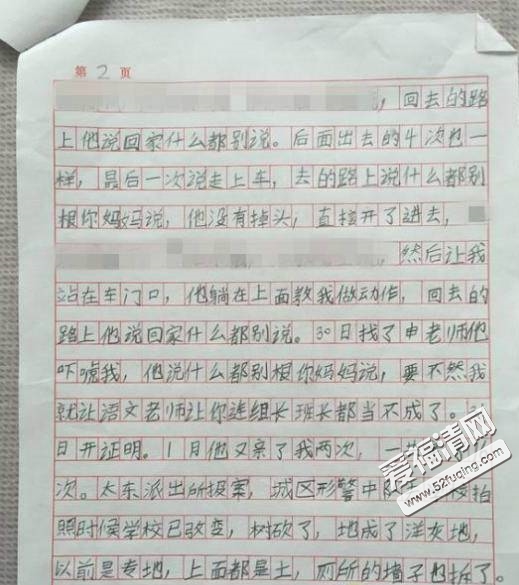 第2页
，回去的路
上他说回家什么都别说。后面出去的4次也一
样，最后一次说走上车，去的路上说什么都别
根你妈妈说，他没有掉头，直接开了进去，
，然后让我
站在车门口，他躺在上面教我做动作，回去的
路上他说回家什么都别说。30日找了申老师他
吓唬我，他说什么都别根你妈妈说，要不然我
就让语文老师让你连组长班长都当不成了。
日开证明。1月他又亲了我两次，一共
次。太东派出所报案，城区形警中队 拍
照时候学校已改变，树砍了，地成了洋灰地，
以前是专地，上面都是土，厕所的墙子也拆了。
爱福清网
www.52fuqing.com